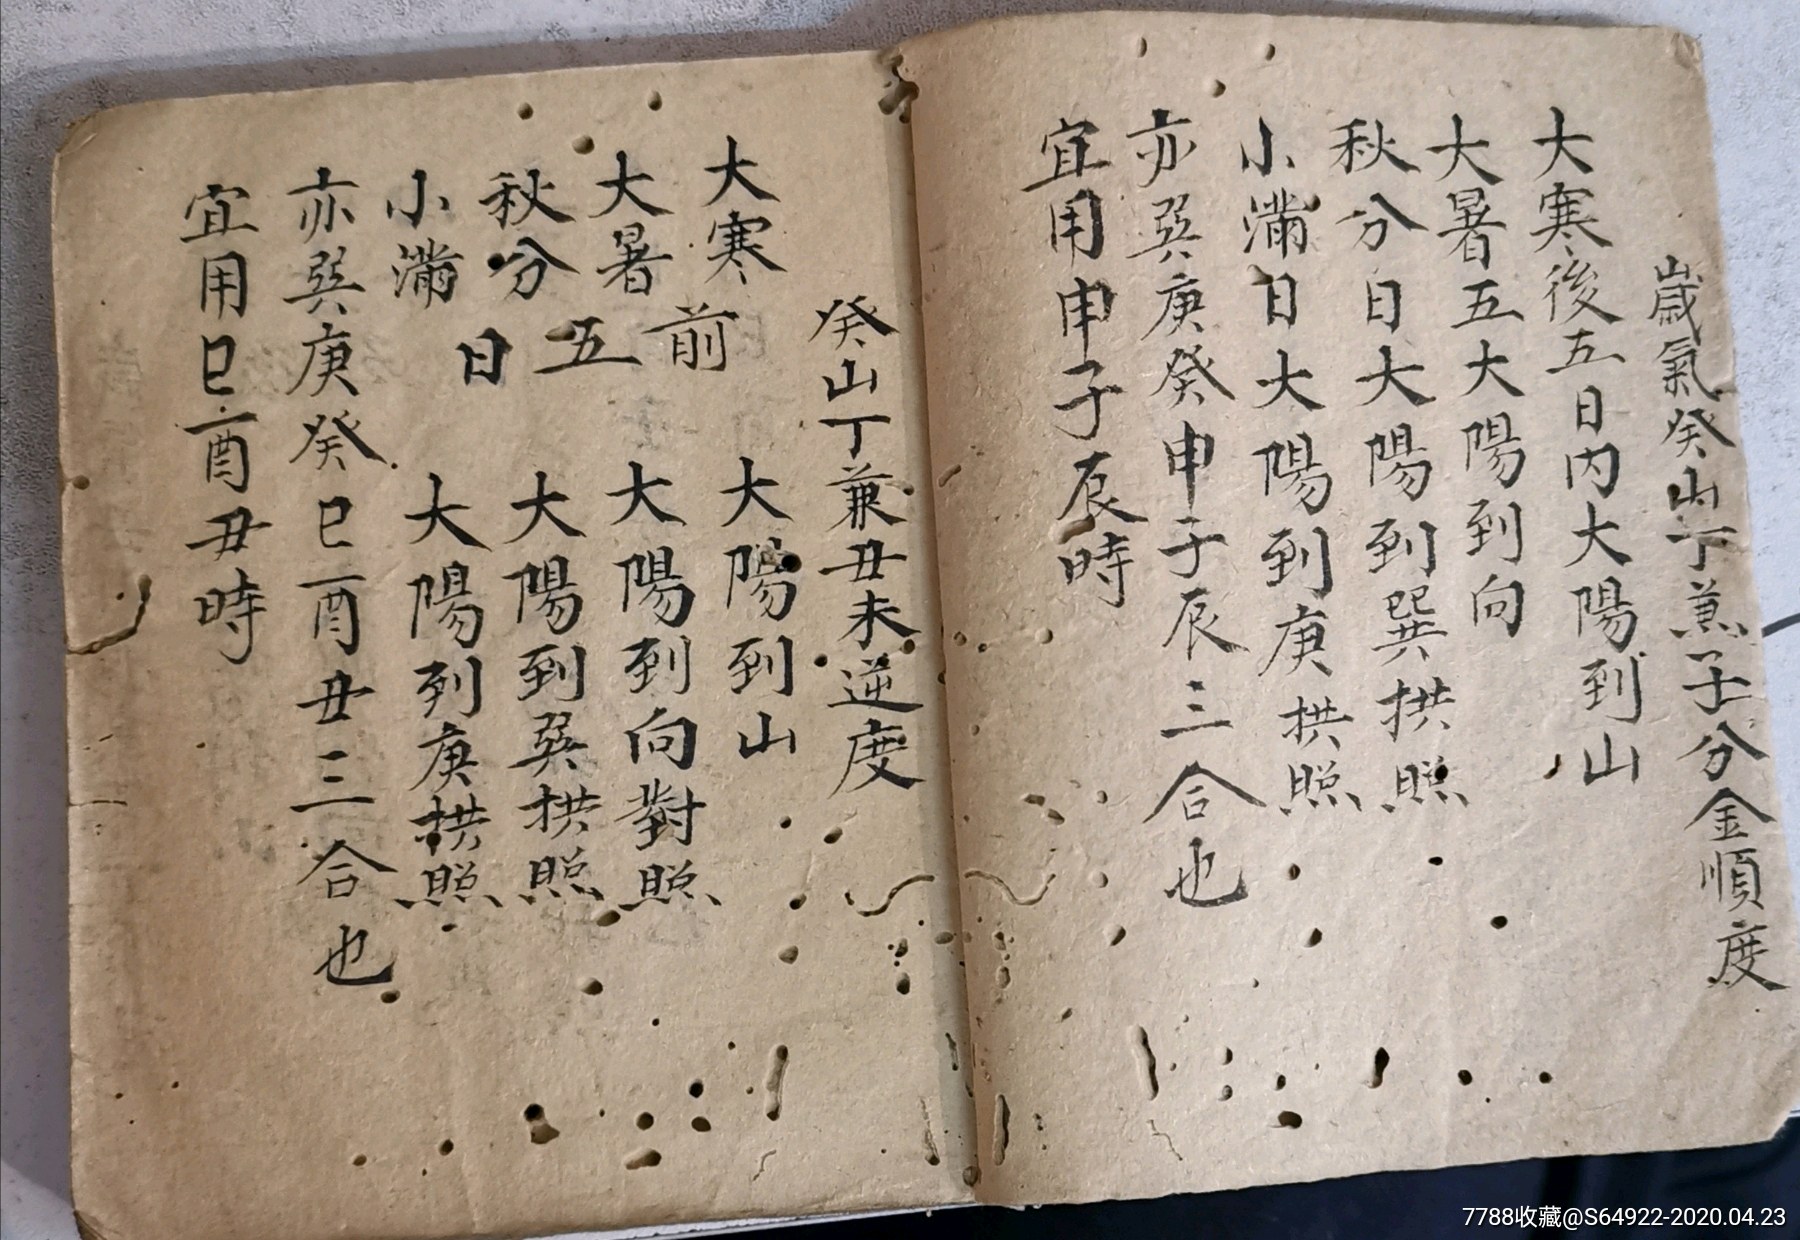 歲氣癸山丁蒹子分金順度
大寒後五日内大陽到山
大暑五大陽到向
秋分日大陽到巽拱照
小滿日大陽到庚拱照
亦巽庚癸申子辰三合也
宜用申子辰時
癸山丁兼丑未逆度
大寒 大陽到山
大暑 大陽到向對照
秋分 大陽到巽拱照
小滿 大陽到庚拱照
前五日
亦巽庚癸巳酉丑三合也
宜用巳酉丑時
7788收藏@S64922-2020.04.23